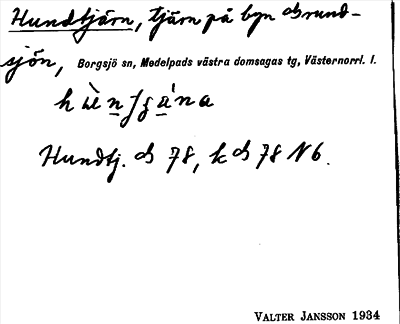 Hundtjärn, tjärn på byn Grund-
sjön, Borgsjö sn, Medelpads västra domsagas tg, Västernorrl. l.
Hundtj. G 78, k G 78 N6.
VALTER JANSSON 1934